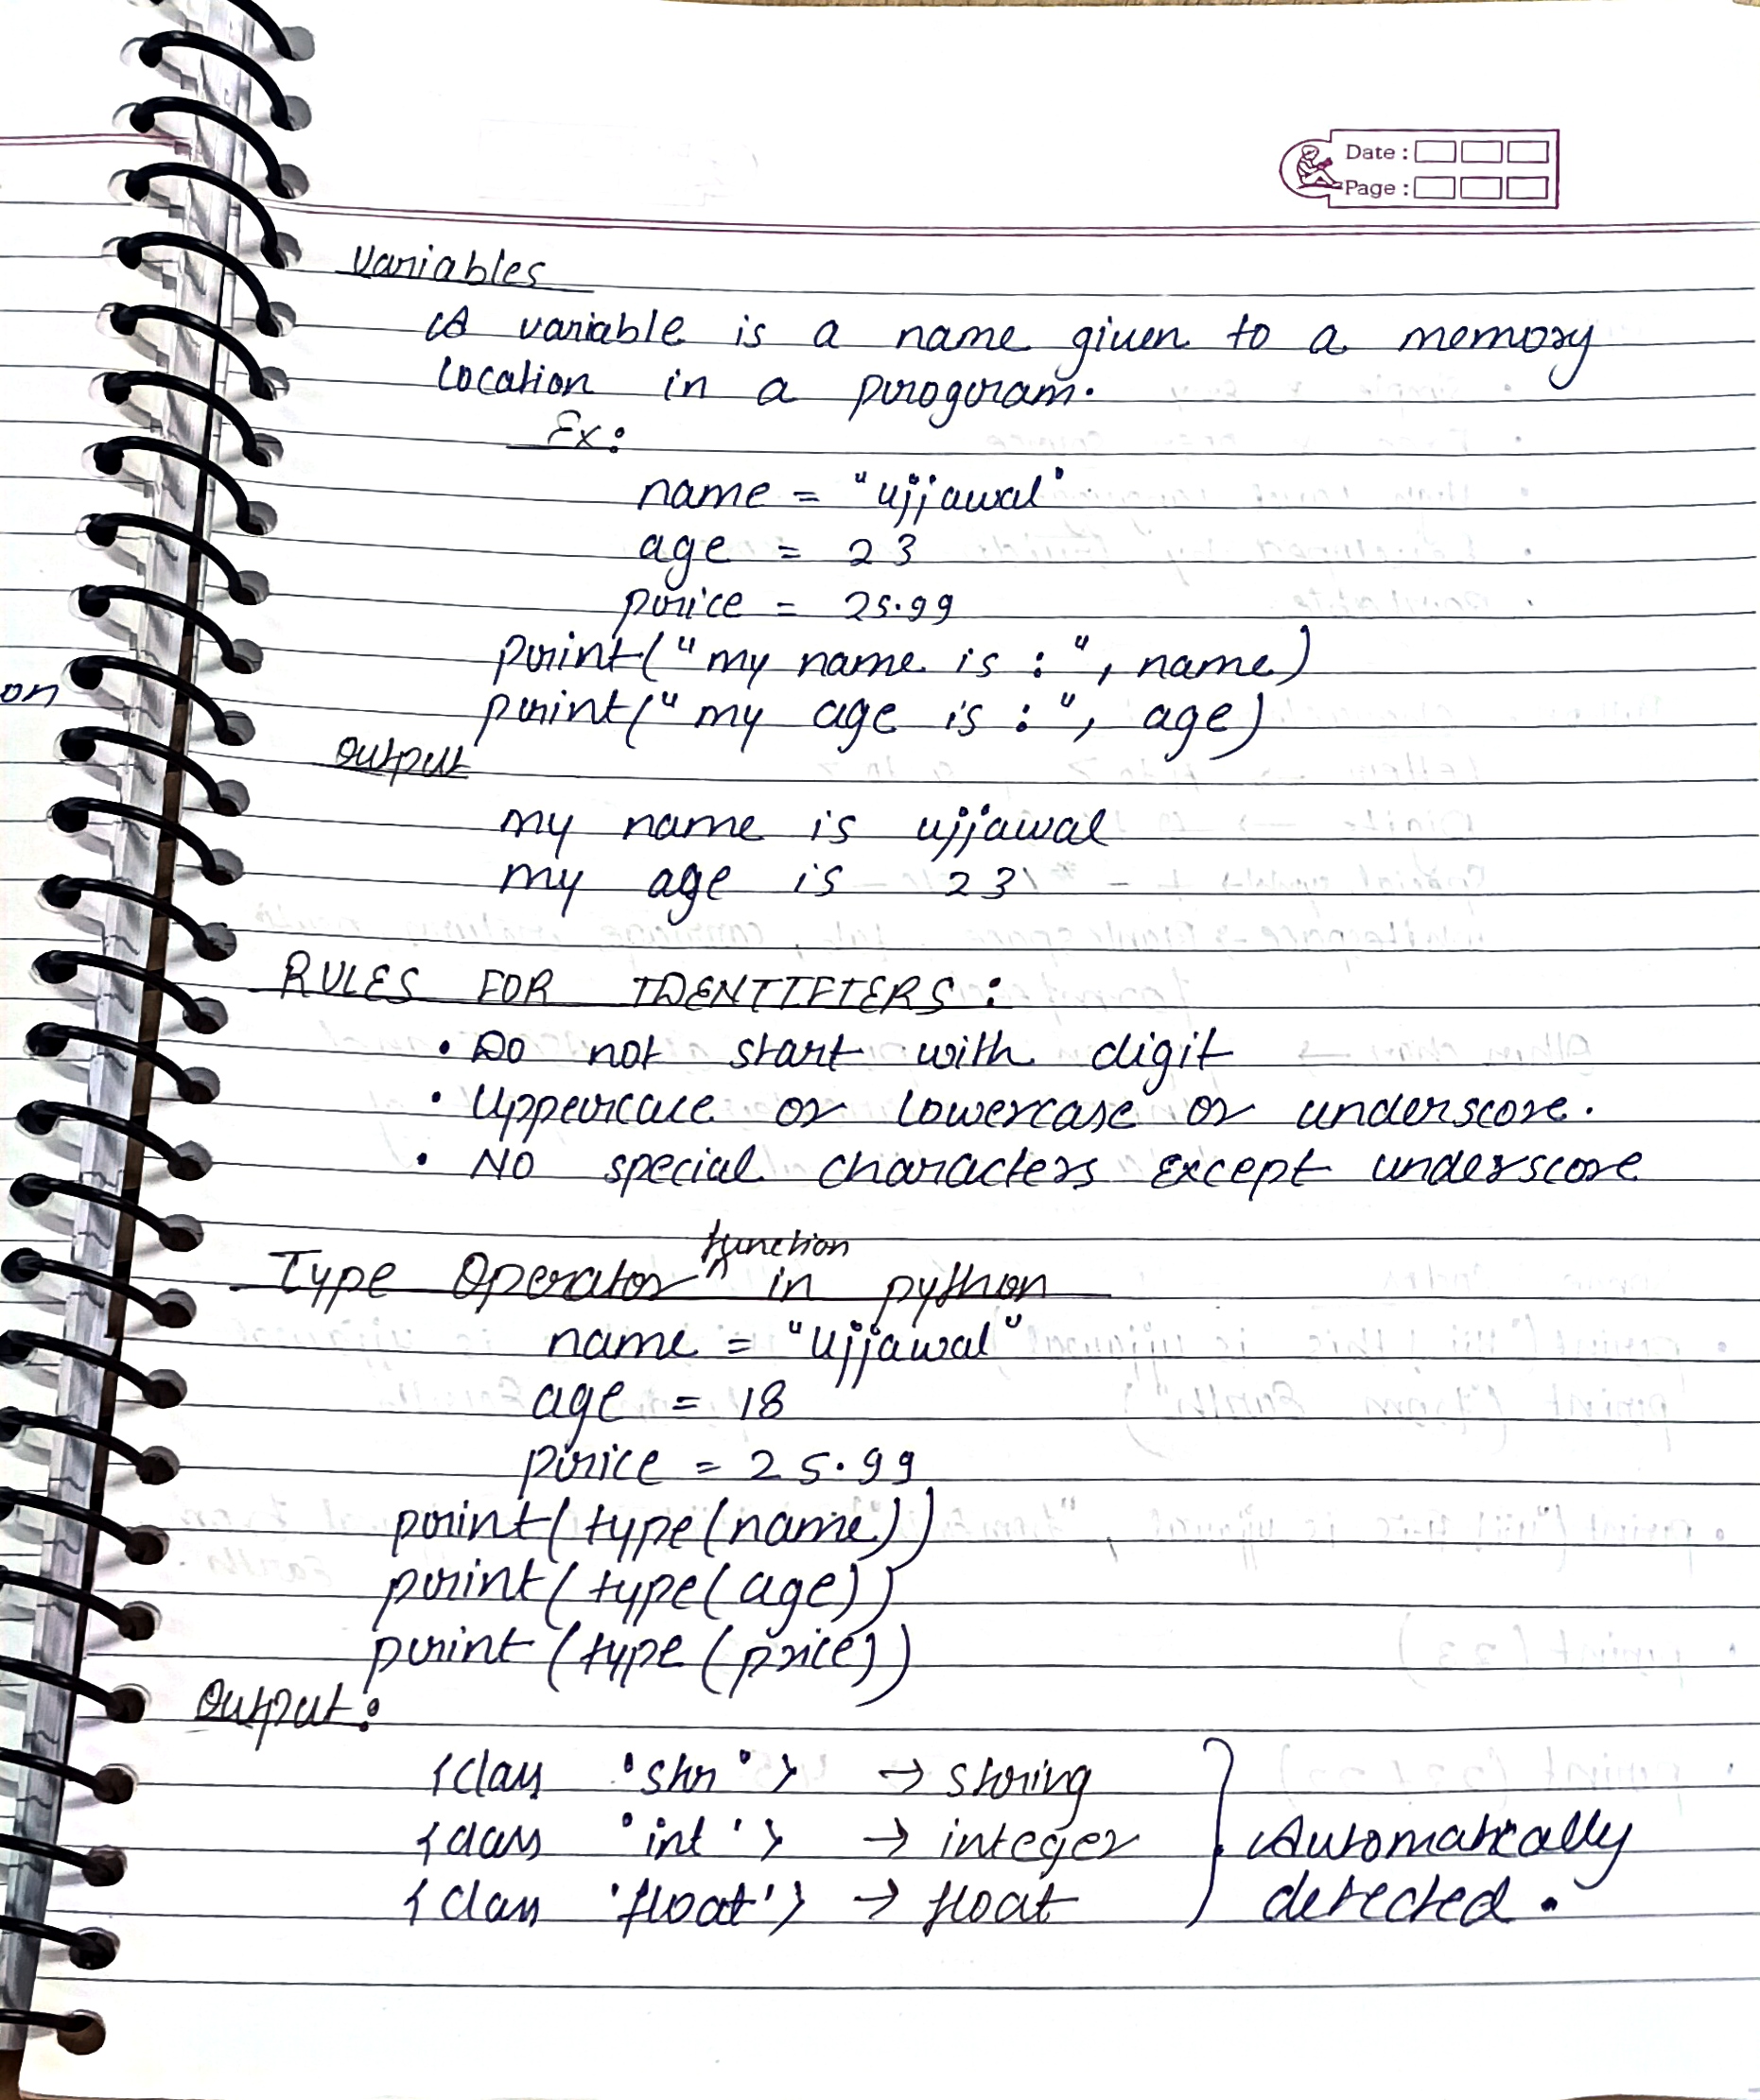 Date :
Page :
Variables
A variable is a name given to a memory
location in a program.
Ex:
name = "ujjawal"
age = 23
price = 25.99
print("my name is : ", name)
on
print("my age is : ", age)
Output
my name is ujjawal
my age is 23
RULES FOR IDENTIFIERS :
• Do not start with digit
• Uppercace or lowercase or underscore.
• No special characters except underscore
function
Type Operator ^ in python
name = "Ujjawal"
age = 18
price = 25.99
print(type(name))
print(type(age))
print(type(price))
Output:
<class 'str'> → string
<class 'int'> → integer
<class 'float'> → float
Automatically
detected.